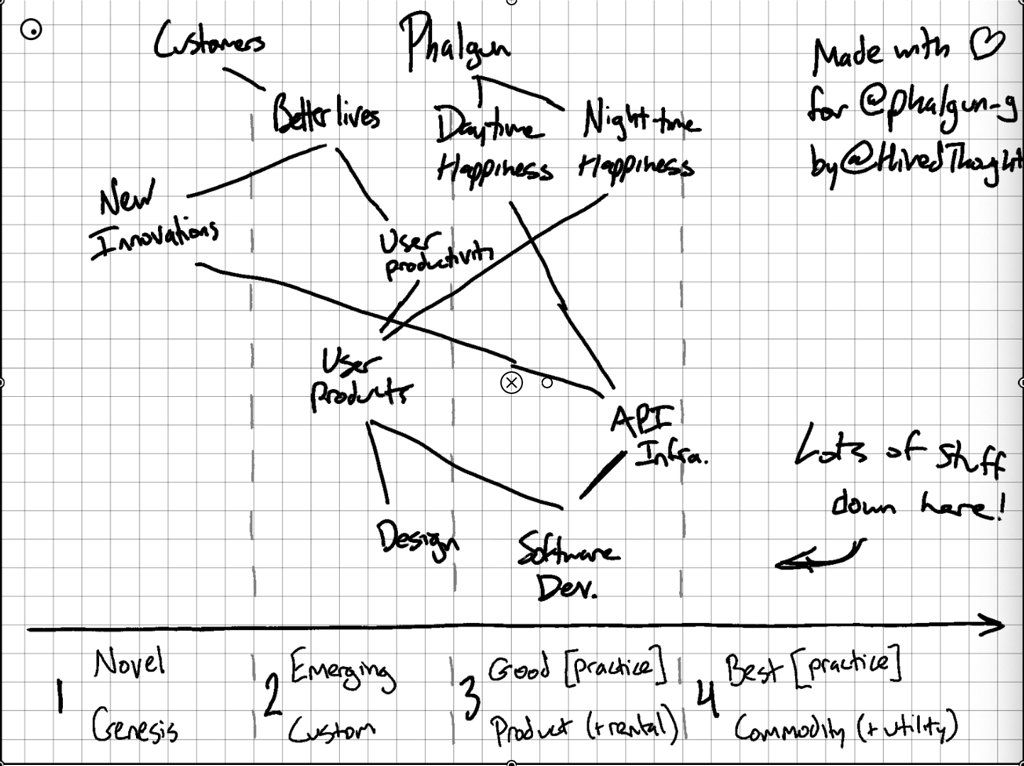 Customers
Phalgun
Made with ♡
for @phalgun-g
by @HivedThought
Better lives
Daytime
Happiness
Night-time
Happiness
New
Innovations
User
productivity
User
products
API
Infra.
Lots of stuff
down here!
Design
Software
Dev.
1 Novel
Genesis
2 Emerging
Custom
3 Good [practice]
Product (+rental)
4 Best [practice]
Commodity (+utility)